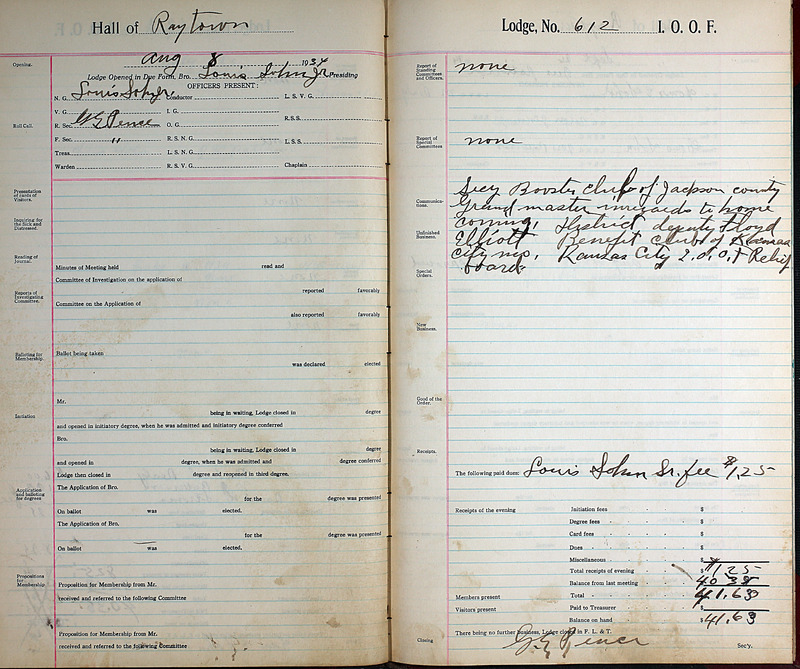 Hall of Raytown
Aug 8 1934
Opening.
Lodge Opened in Due Form, Bro. Louis John Jr. Presiding
OFFICERS PRESENT:
N. G. Louis John Jr. Conductor L. S. V. G.
V. G. I. G.
Roll Call.
R. Sec. G E Pence O. G. R.S.S.
F. Sec. " R. S. N. G. L.S.S.
Treas. L. S. N. G.
Warden R. S. V. G. Chaplain
Presentation of cards of Visitors.
Inquiring for the Sick and Distressed.
Reading of Journal.
Minutes of Meeting held read and
Committee of Investigation on the application of
reported favorably
Reports of Investigating Committee.
Committee on the Application of
also reported favorably
Balloting for Membership.
Ballot being taken
was declared elected
Mr.
Initiation
being in waiting, Lodge closed in degree
and opened in initiatory degree, when he was admitted and initiatory degree conferred
Bro.
being in waiting, Lodge closed in degree
and opened in degree, when he was admitted and degree conferred
Lodge then closed in degree and reopened in third degree.
Application and balloting for degrees
The Application of Bro.
for the degree was presented
On ballot was elected.
The Application of Bro.
for the degree was presented
On ballot was elected.
Propositions for Membership
Proposition for Membership from Mr.
received and referred to the following Committee
Proposition for Membership from Mr.
received and referred to the following Committee
Lodge, No. 612 I. O. O. F.
Report of Standing Committees and Officers.
none
Report of Special Committees
none
Communications.
Secy Booster Club of Jackson county
Grand master in regards to home
coming, District deputy Floyd
Unfinished Business.
Elliott Benefit Club of Kansas
city mo. Kansas City I.O.O.F Relief
board.
Special Orders.
New Business.
Good of the Order.
Receipts.
The following paid dues: Louis John Sr. fee $1.25
Receipts of the evening Initiation fees $
Degree fees $
Card fees $
Dues $
Miscellaneous $
Total receipts of evening $1.25
Balance from last meeting 40.38
Members present Total 41.63
Visitors present Paid to Treasurer
Balance on hand $41.63
There being no further business, Lodge closed in F. L. & T.
Closing G. E. Pence Sec'y.